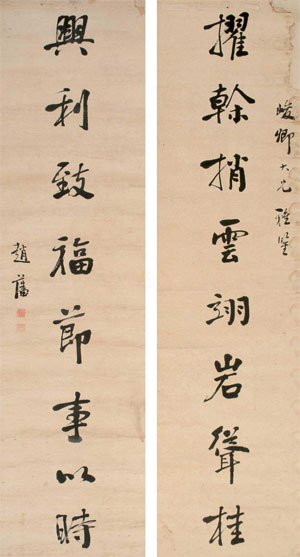 峻卿大兄雅鉴
擢榦捎雲翊岩聳桂
興利致福節事以時
趙藩